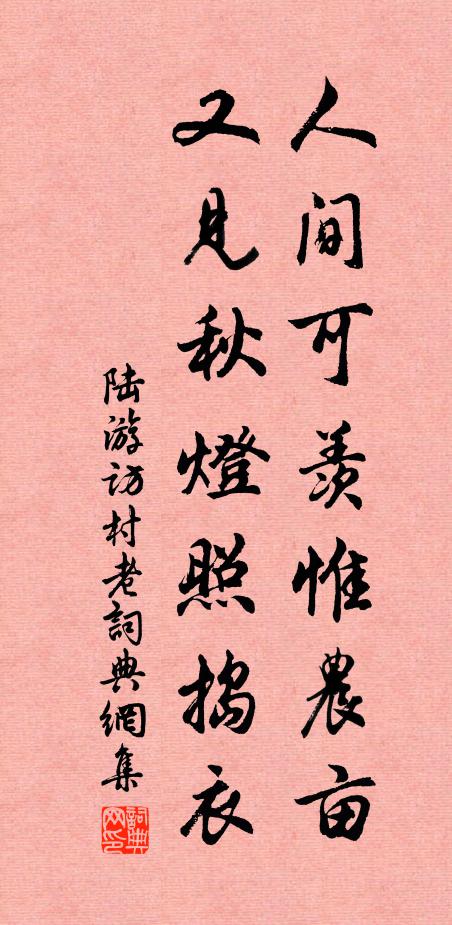 人间可羨惟農亩
又見秋燈照搗衣
陆游访村老詞典網集
詞典网印